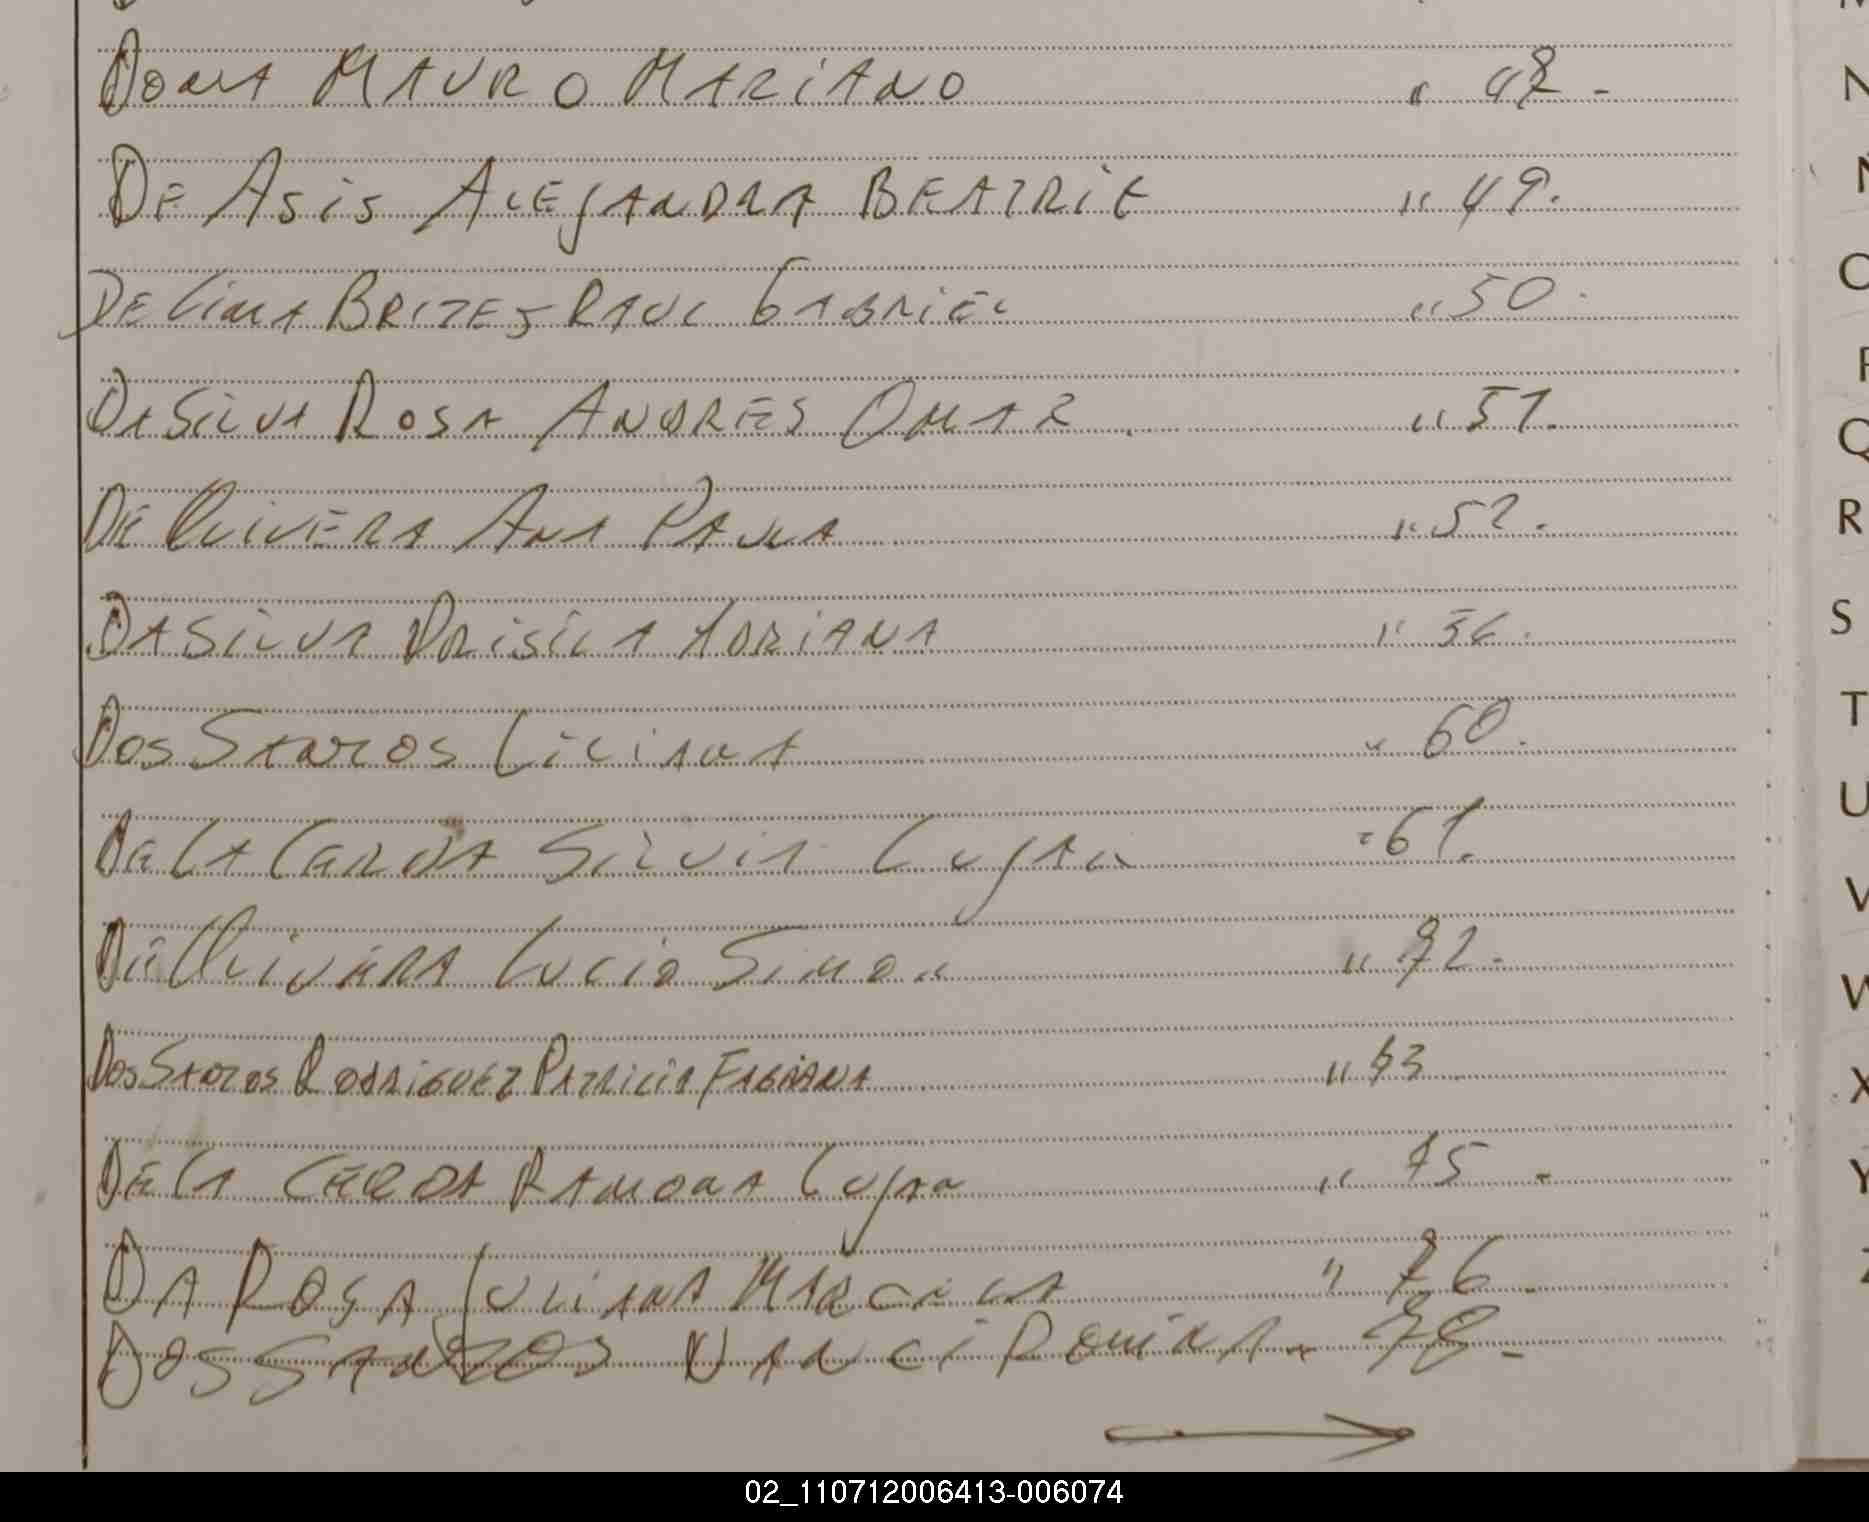 Dona MAURO MARIANO " 48 -
DE ASis ALEJANDRA BEATRiE " 49.
DE Lima BRITES RAUL GABRIEL " 50.
DA SiLVA ROSA ANDRES OMAR. " 51.
DE OLIVERA ANA PAULA " 52.
DA SiLVA PRiSiLA ADRIANA " 56.
DOS SANTOS LiLiANA " 60.
DE LA CERDA SiLViA LUJAN " 61.
DE OLiVERA LUCIO SIMON " 72.
DOS SANTOS RODRiGUEZ PATRICIA FABIANA " 73
DE LA CERDA RAMONA LUJAN " 75 -
DA ROSA JULIANA MARCELA " 76 -
DOS SANTOS NANCi ROMINA " 78 -
N
Ñ
O
P
Q
R
S
T
U
V
W
X
Y
Z
02_110712006413-006074